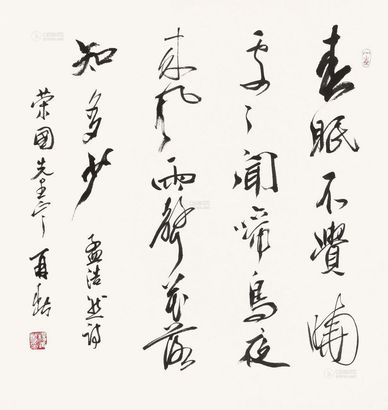 春眠不覺曉
處々聞啼鳥夜
来風雨聲花落
知多少 孟浩然詩
榮國先生